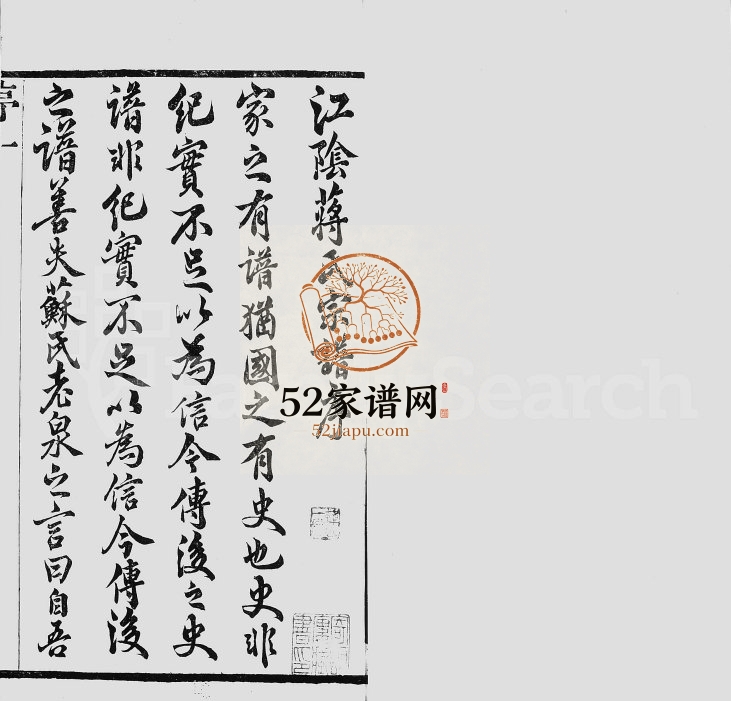 江陰蔣氏宗譜序
家之有譜猶國之有史也史非
紀實不足以為信今傳後之史
譜非紀實不足以為信今傳後
之譜善夫蘇氏老泉之言曰自吾
序一
52家谱网
52jiapu.com
Search